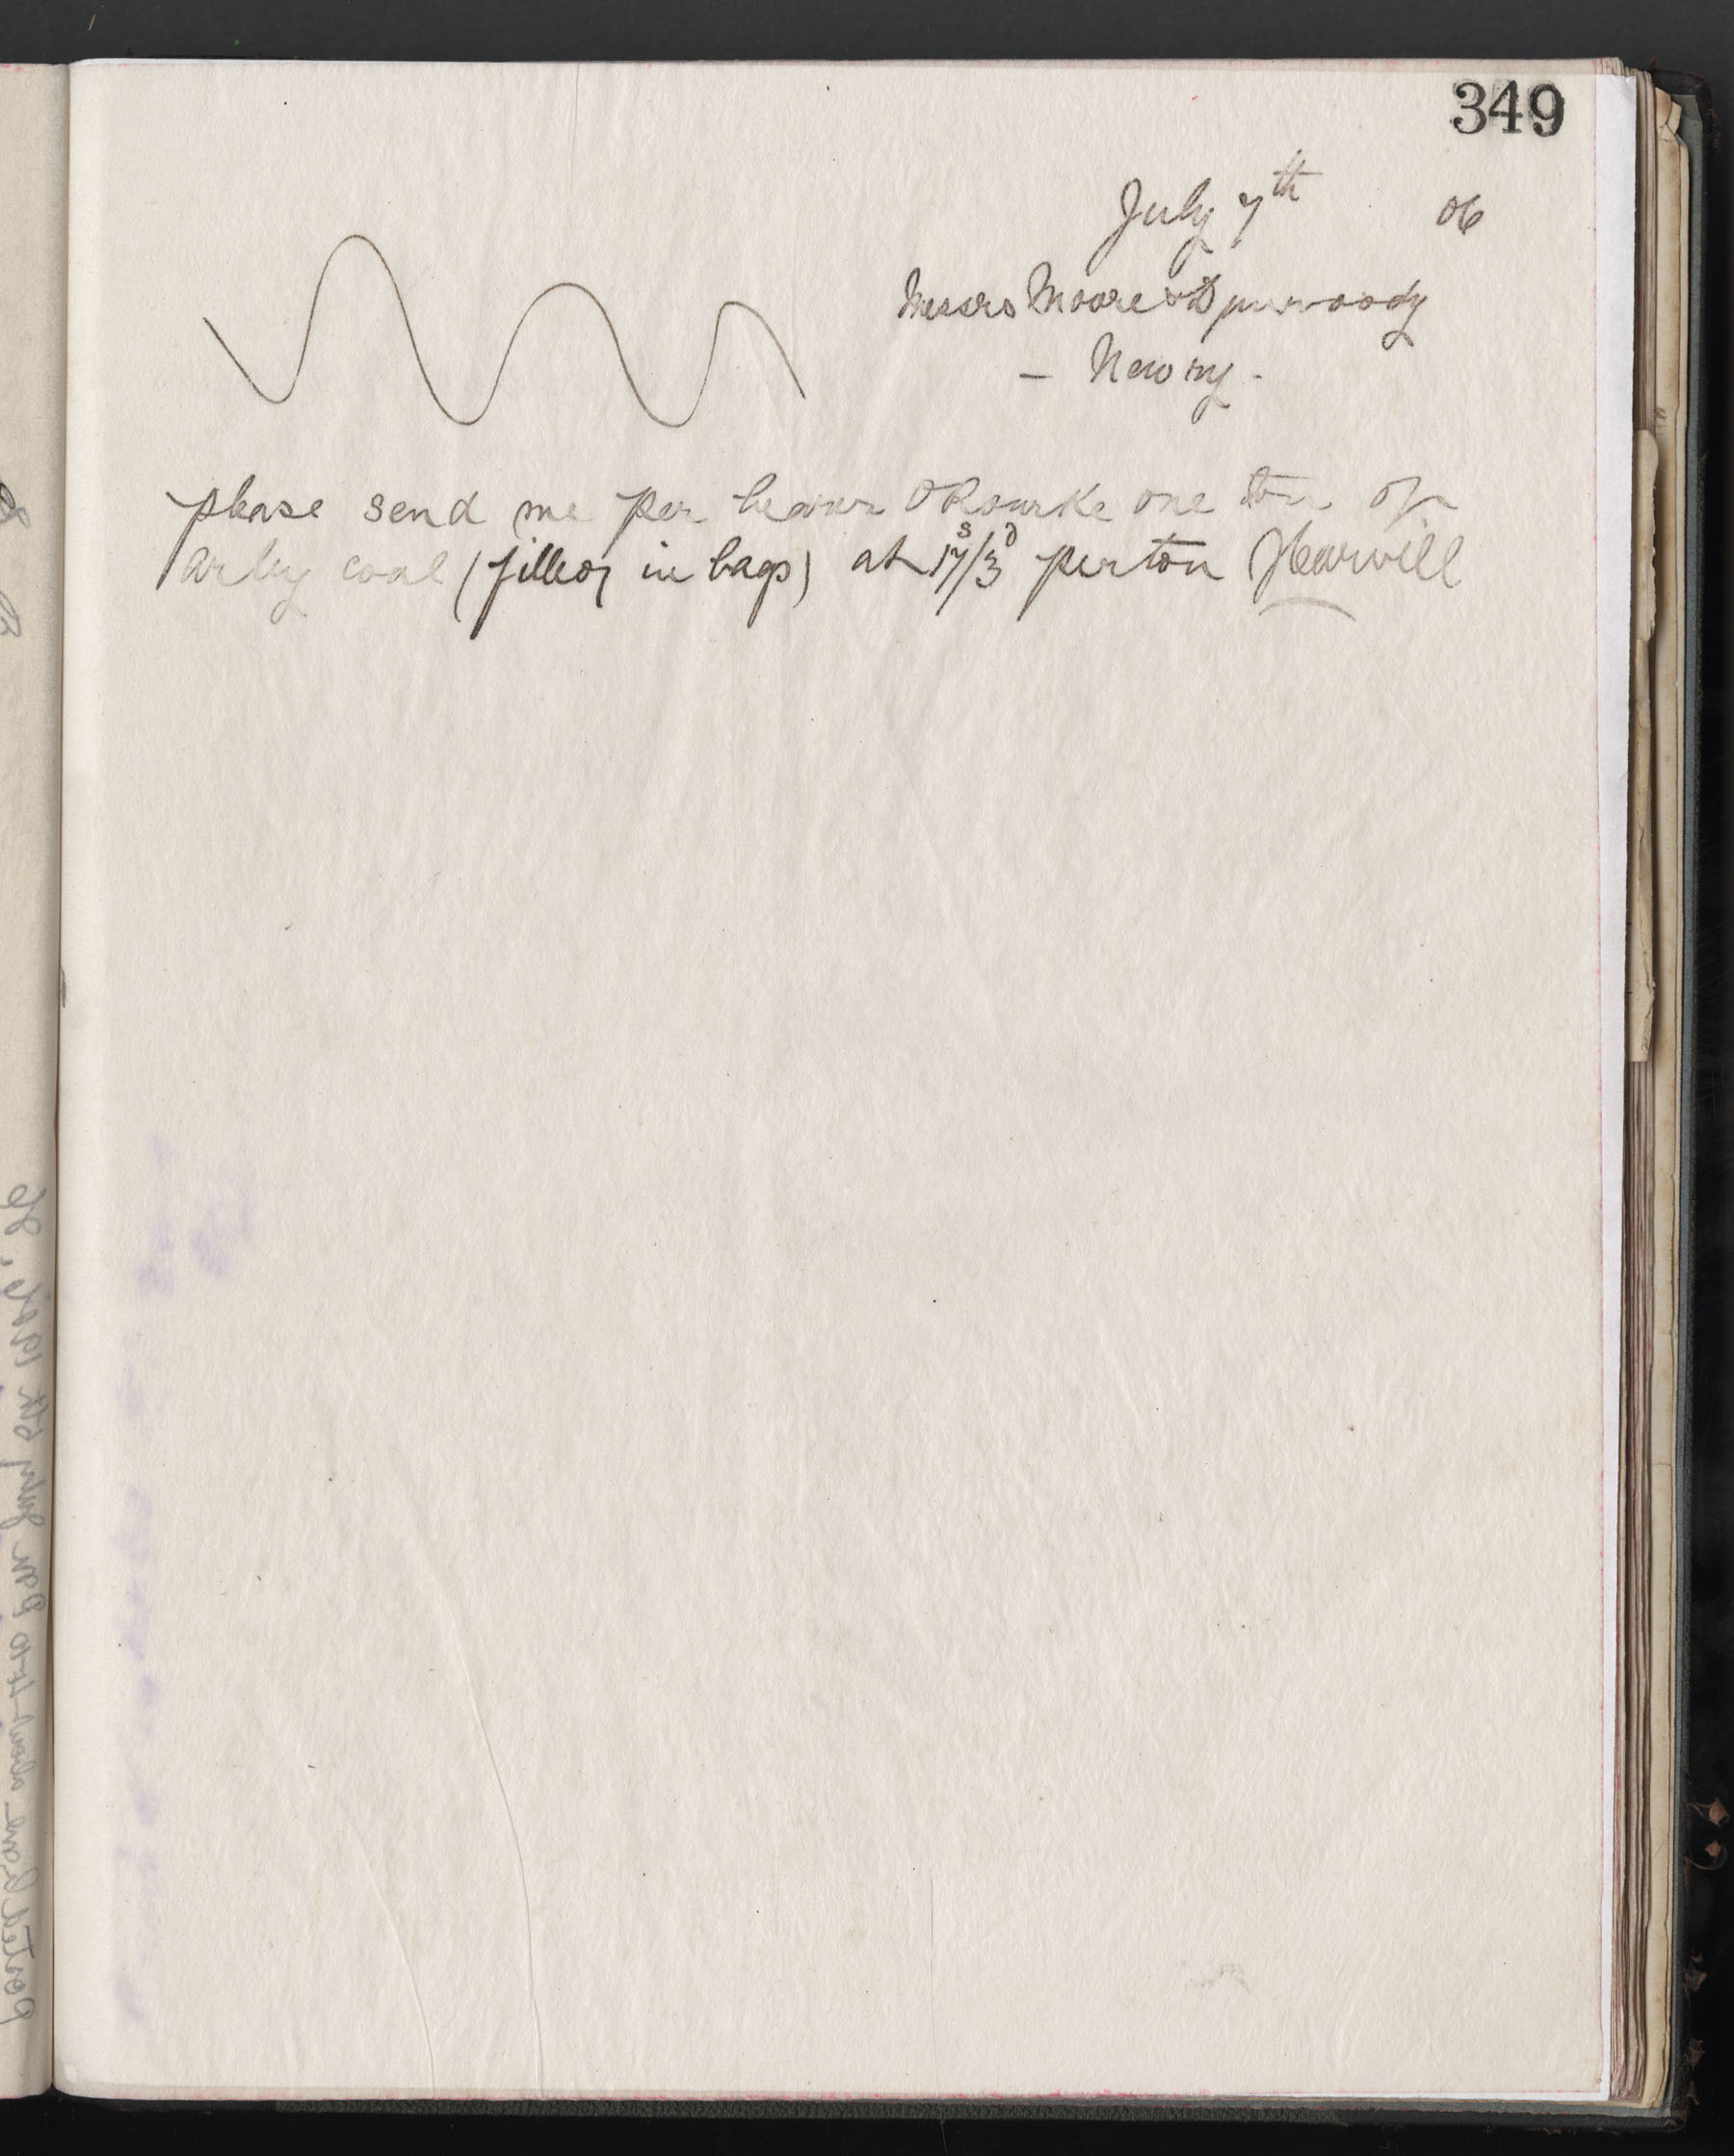 349
July 7th 06
Messrs Moore & Dunwoody
- Newry -
please send me per bearer O Rourke one ton of
Arley coal (filled in bags) at 17s/3d per ton